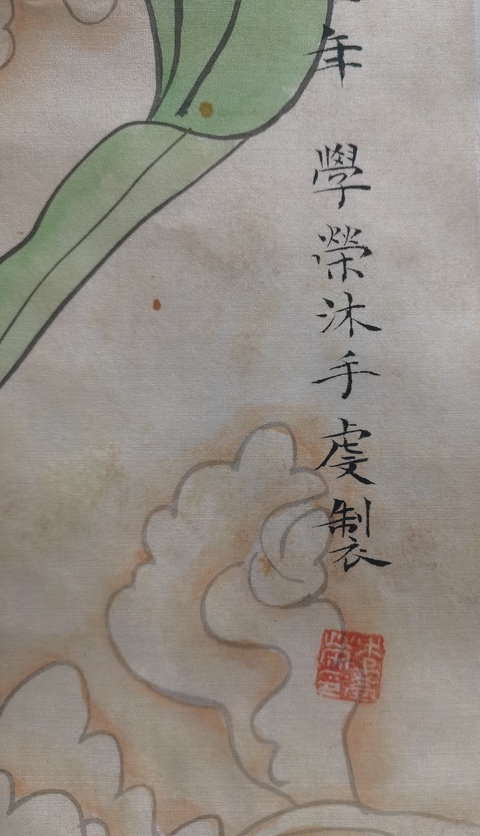 年 學榮沐手虔製